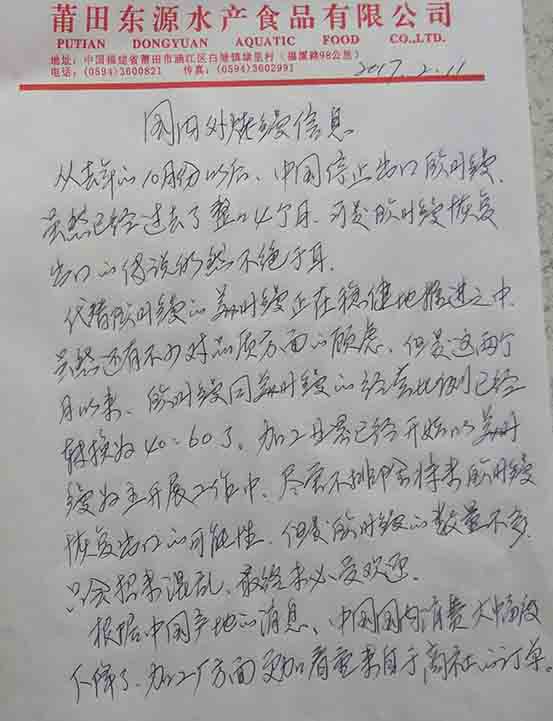 莆田东源水产食品有限公司
PUTIAN DONGYUAN AQUATIC FOOD CO.,LTD.
地址：中国福建省莆田市涵江区白塘镇埭里村（福厦路98公里）
电话：(0594)3600821 传真：(0594)3602991
2017.2.11
国内外烤鳗信息
从去年的10月份以后、中国停止出口欧洲鳗、
虽然已经过去了整整4个月、可是欧洲鳗恢复
出口的传说仍然不绝于耳.
代替欧洲鳗的美洲鳗正在稳健地推进之中.
虽然还有不少对品质方面的顾虑、但是这两个
月以来、欧洲鳗同美洲鳗的经营比例已经
转换为40:60了、加工且已经开始以美洲
鳗为主开展工作中、尽管不排除将来欧洲鳗
恢复出口的可能性、但是欧洲鳗的数量不多
只会招来混乱、最终未必受欢迎.
根据中国产地的消息、中国国内消费大幅度
下降了、加工厂方面更加看重来自于商社的订单。